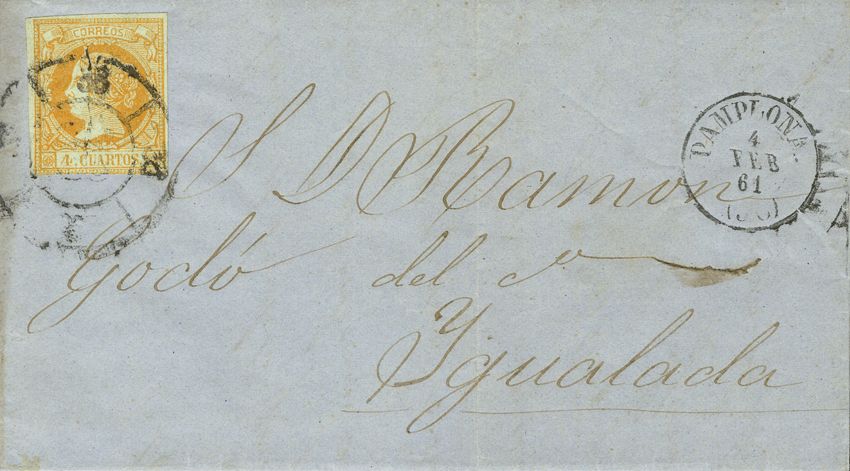 CORREOS
4 CUARTOS
S D Ramon
Godó del Cº
Ygualada
PAMPLONA
4
FEB
61